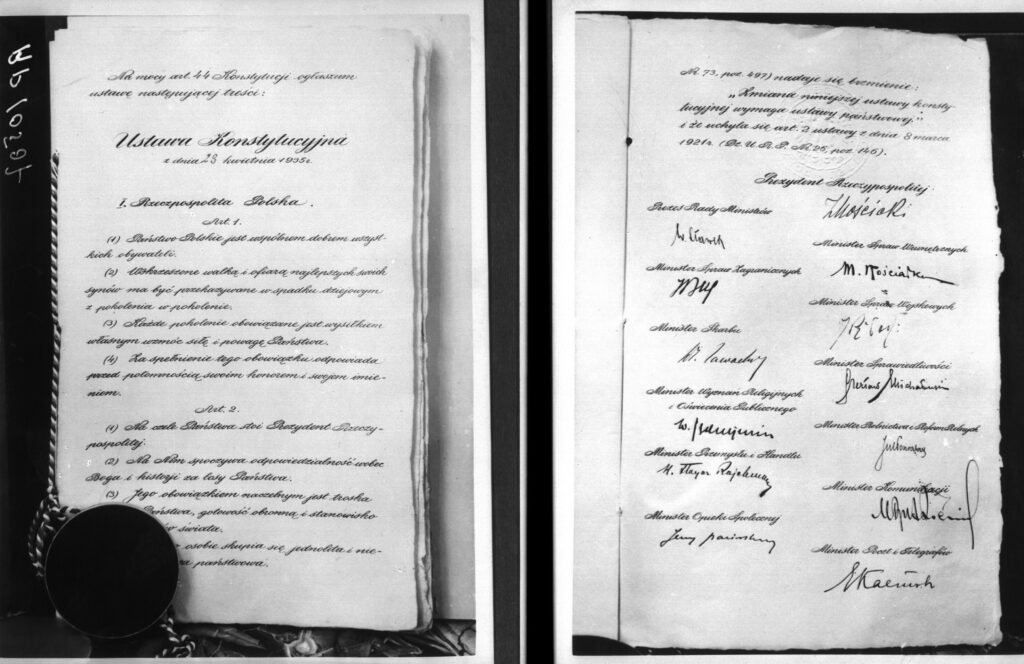 Na mocy art. 44 Konstytucji ogłaszam
ustawę następującej treści:
Ustawa Konstytucyjna
z dnia 23 kwietnia 1935r.
I. Rzeczpospolita Polska.
Art. 1.
(1) Państwo Polskie jest wspólnem dobrem wszyst-
kich obywateli.
(2) Wskrzeszone walką i ofiarą najlepszych swoich
synów ma być przekazywane w spadku dziejowym
z pokolenia w pokolenie.
(3) Każde pokolenie obowiązane jest wysiłkiem
własnym wzmóc siłę i powagę Państwa.
(4) Za spełnienie tego obowiązku odpowiada
przed potomnością swoim honorem i swojem imie-
niem.
Art. 2.
(1) Na czele Państwa stoi Prezydent Rzeczy-
pospolitej.
(2) Na Nim spoczywa odpowiedzialność wobec
Boga i historji za losy Państwa.
(3) Jego obowiązkiem naczelnym jest troska
Państwa, gotowość obronną i stanowisko
świata.
osobie skupia się jednolita i nie-
państwowa.
Nr. 73, poz. 497) nadaje się brzmienie:
„Zmiana niniejszej ustawy konsty-
tucyjnej wymaga ustawy państwowej."
i że uchyla się art. 2 ustawy z dnia 8 marca
1921r. (Dz. U. R. P. Nr. 25, poz. 146).
Prezydent Rzeczypospolitej
I Mościcki
Prezes Rady Ministrów
W Sławek
Minister Spraw Wewnętrznych
M. Kościałkowski
Minister Spraw Zagranicznych
Minister Spraw Wojskowych
Minister Skarbu
Minister Sprawiedliwości
Czesław Michałowski
Minister Wyznań Religijnych
i Oświecenia Publicznego
W. Jędrzejewicz
Minister Rolnictwa i Reform Rolnych
Minister Przemysłu i Handlu
H. Floyar Rajchman
Minister Komunikacji
Minister Opieki Społecznej
Jerzy Paciorkowski
Minister Poczt i Telegrafów
E Kaliński